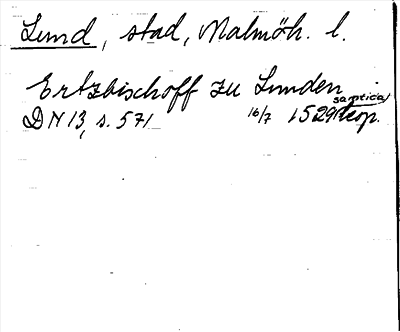 Lund, stad, Malmöh. l.
Ertzbischoff zu Lunden
DN 13, s. 571 16/7 1529 kop.